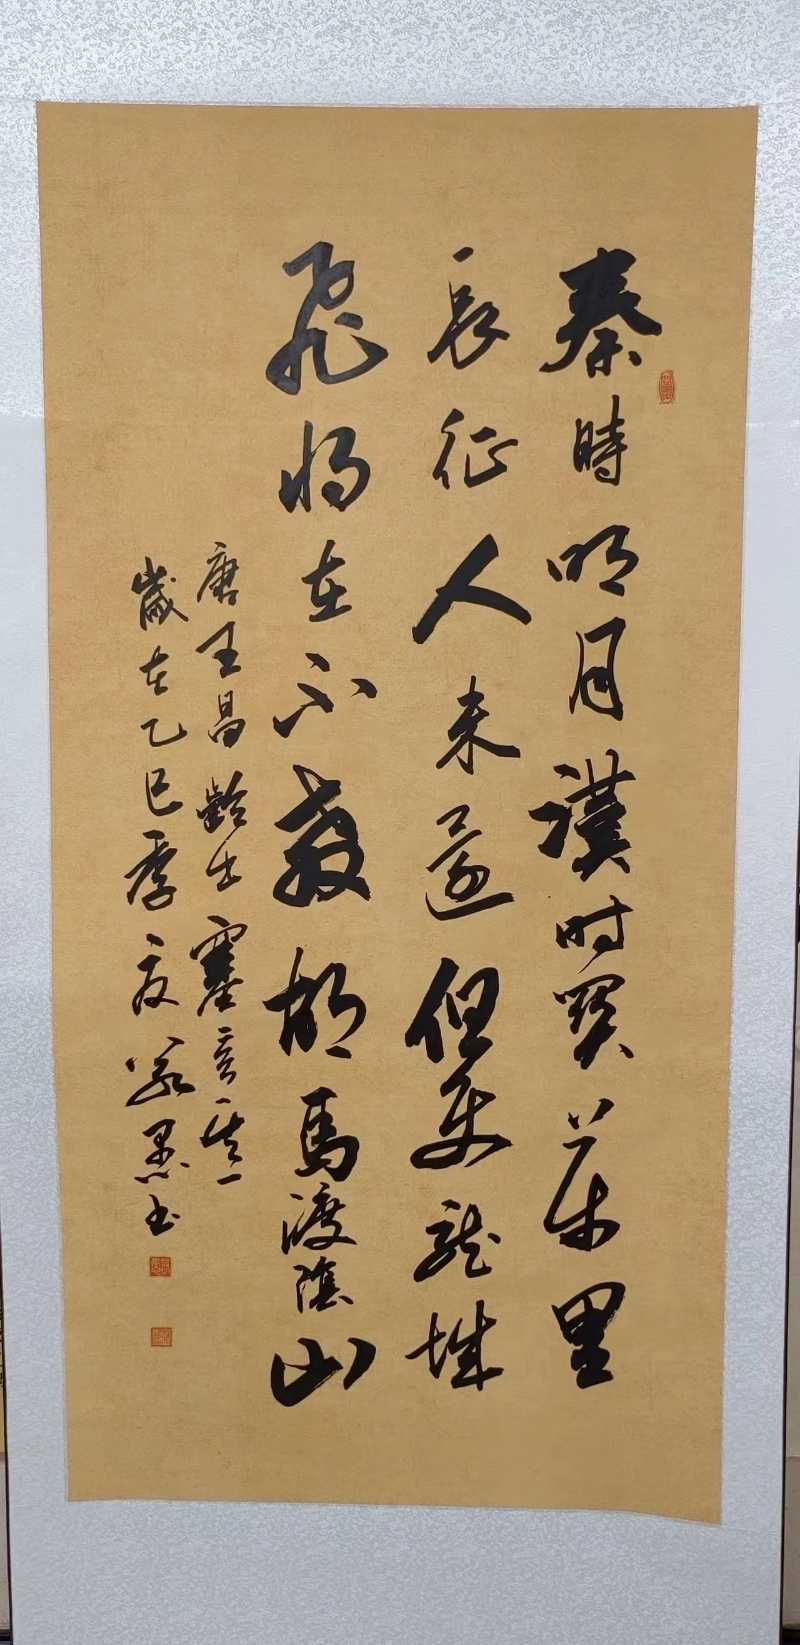 秦時明月漢时関萬里
長征人未還但使龍城
飛将在不教胡馬渡陰山
唐王昌齡出塞二首其一
歲在乙巳季夏 墨书